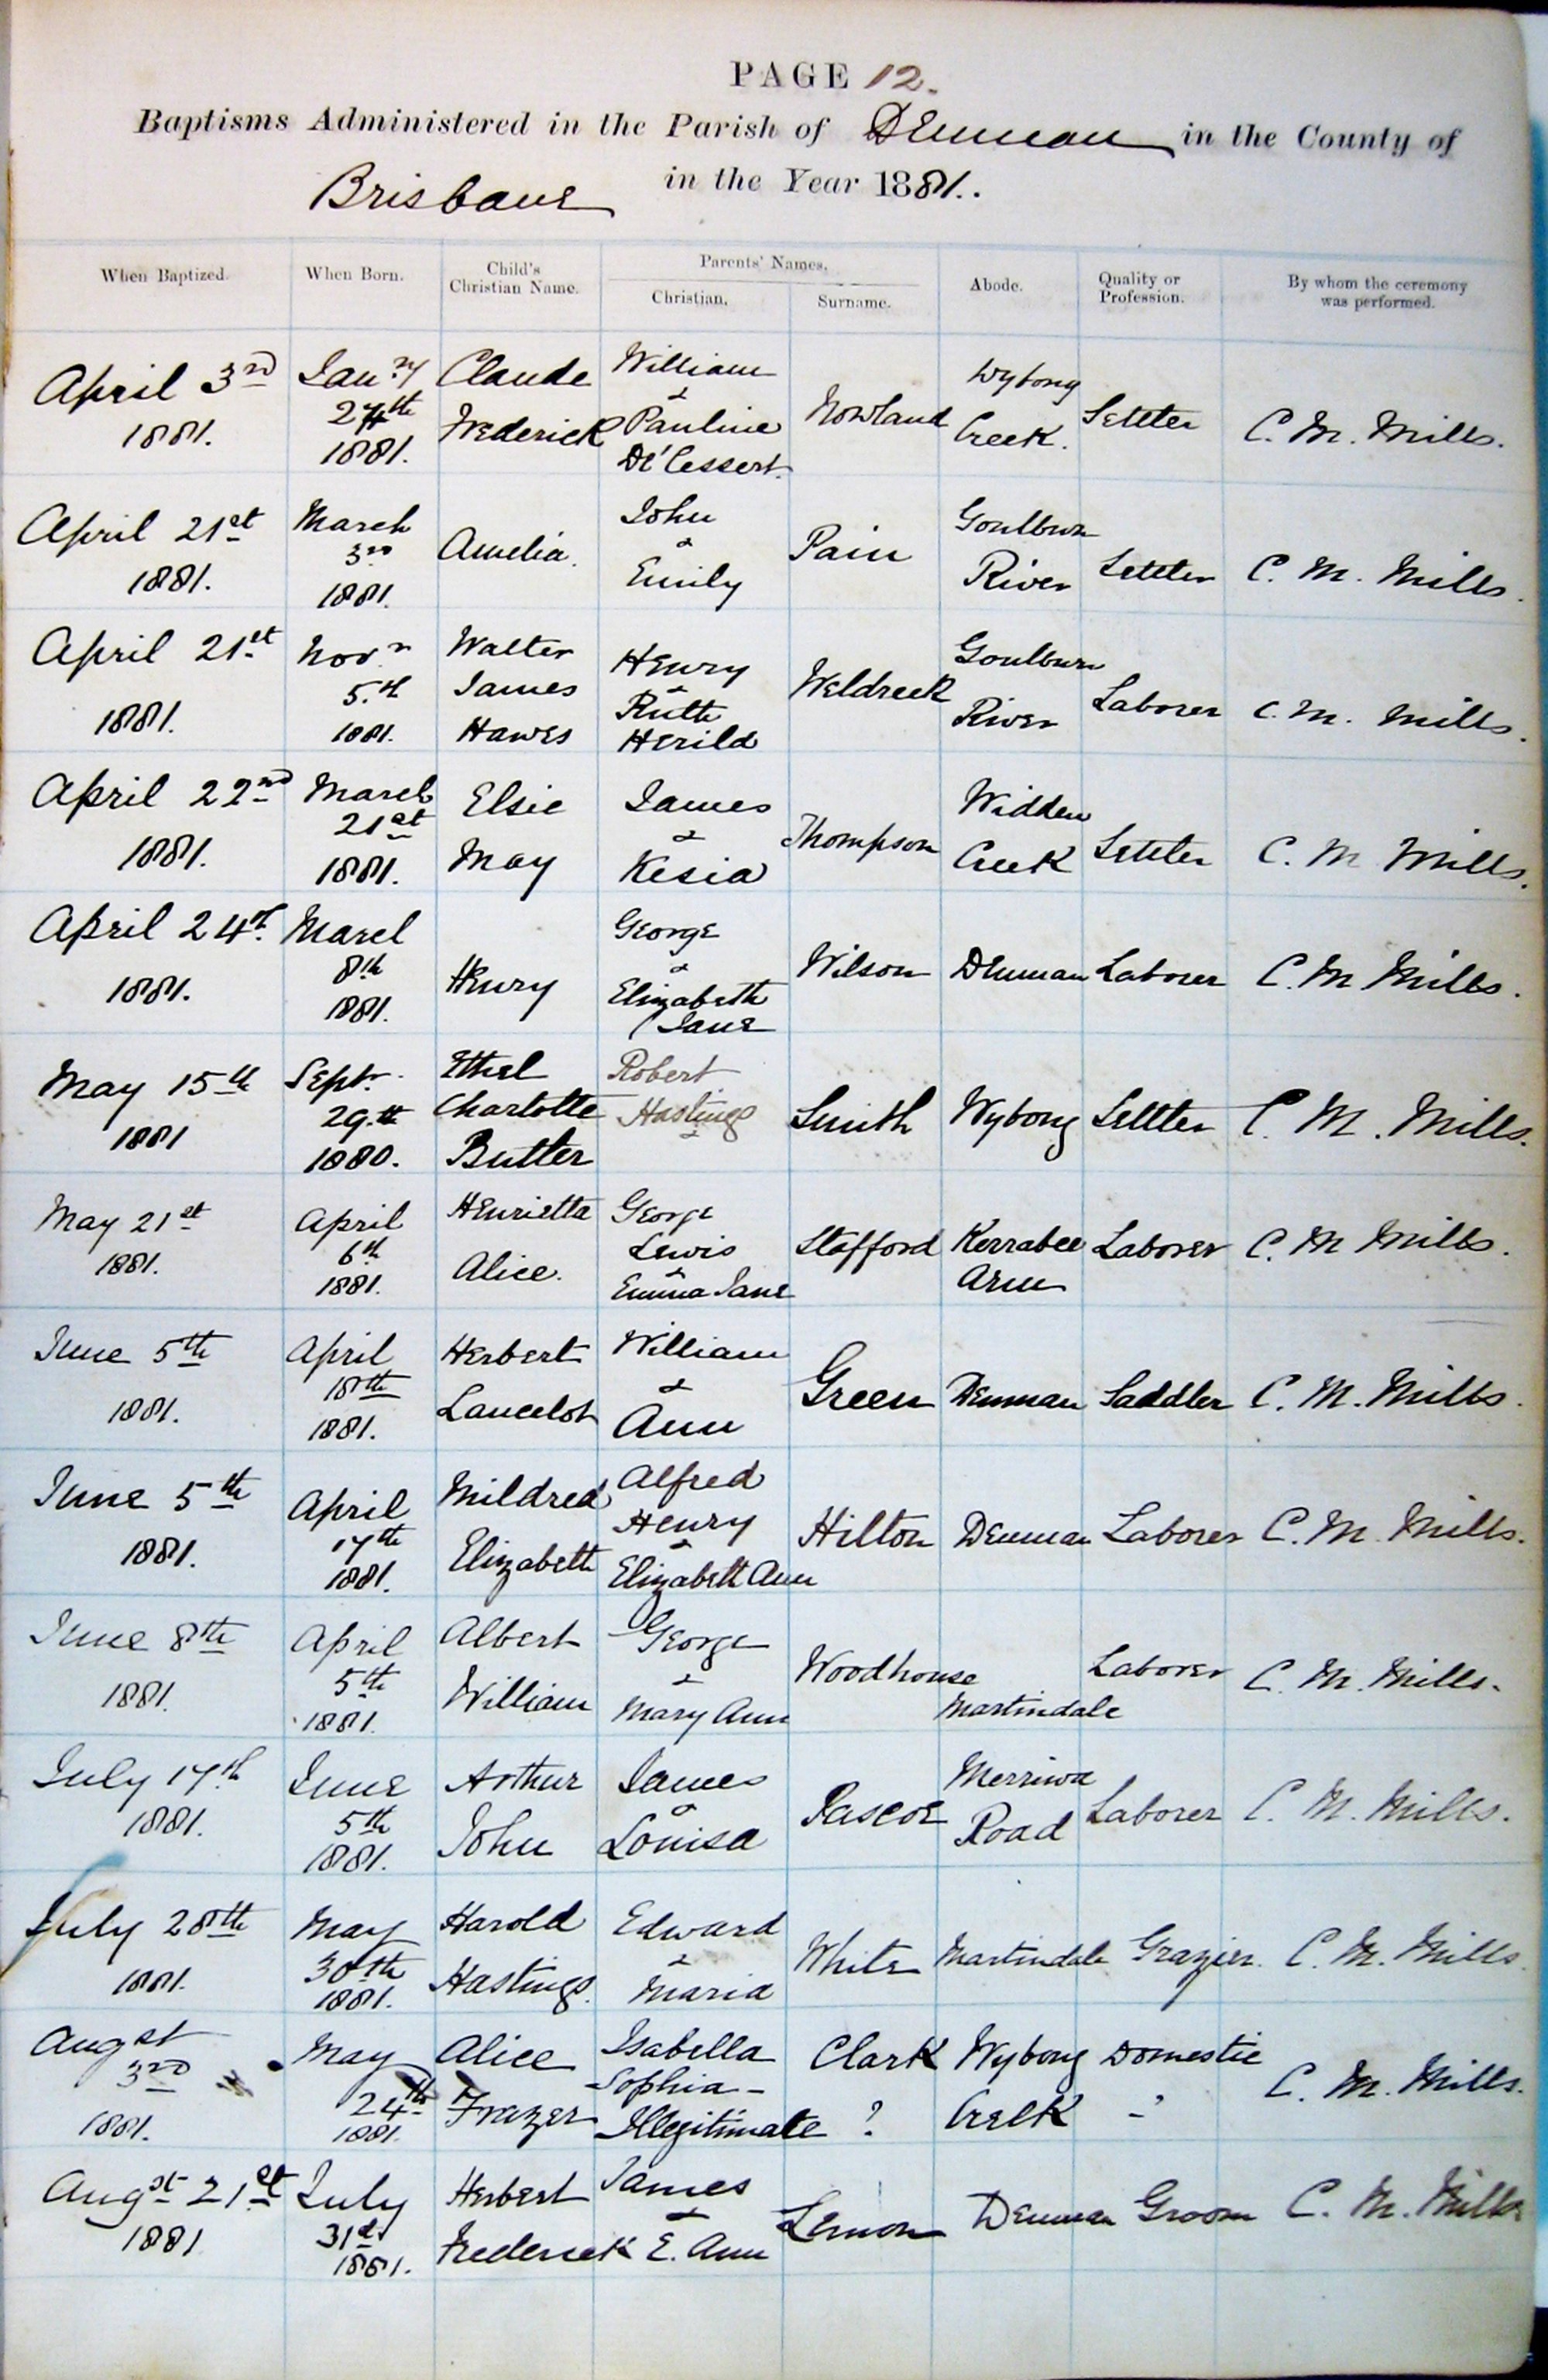 PAGE 12.
Baptisms Administered in the Parish of Denman in the County of
Brisbane in the Year 1881.
When Baptized. When Born. Child's Christian Name. Parents' Names. Christian. Surname. Abode. Quality or Profession. By whom the ceremony was performed.
April 3rd 1881. Jany 27th 1881. Claude Frederick William & Pauline De'Cessert. Nowland Wybong Creek. Settler C. M. Mills.
April 21st 1881. March 3rd 1881. Amelia. John & Emily Pain Goulburn River Settler C. M. Mills.
April 21st 1881. Novr 5th 1881. Walter James Hawes Henry & Ruth Herild Weldreck Goulburn River Laborer C. M. Mills.
April 22nd 1881. March 21st 1881. Elsie May James & Kesia Thompson Widden Creek Settler C. M Mills.
April 24th 1881. March 8th 1881. Henry George & Elizabeth Jane Wilson Denman Laborer C. M Mills.
May 15th 1881 Septr 29th 1880. Ethel Charlotte Butler Robert Hastings & Smith Wybong Settler C. M. Mills.
May 21st 1881. April 6th 1881. Henrietta Alice. George Lewis & Emma Jane Stafford Kerrabee Arm Laborer C. M Mills.
June 5th 1881. April 18th 1881. Herbert Lancelot William & Ann Green Denman Saddler C. M. Mills.
June 5th 1881. April 17th 1881. Mildred Elizabeth Alfred Henry & Elizabeth Ann Hilton Denman Laborer C. M. Mills.
June 8th 1881. April 5th 1881. Albert William George & Mary Ann Woodhouse Martindale Laborer C. M. Mills.
July 17th 1881. June 5th 1881. Arthur John James & Louisa Pascoe Merriwa Road Laborer C. M. Mills.
July 28th 1881. May 30th 1881. Harold Hastings. Edward & Maria White Martindale Grazier. C. M. Mills.
Augst 3rd 1881. May 24th 1881. Alice Frazer Isabella Sophia - Illegitimate Clark ? Wybong Creek Domestic - C. M. Mills.
Augst 21st 1881 July 31st 1881. Herbert Frederick James & E. Ann Lemon Denman Groom C. M. Mills